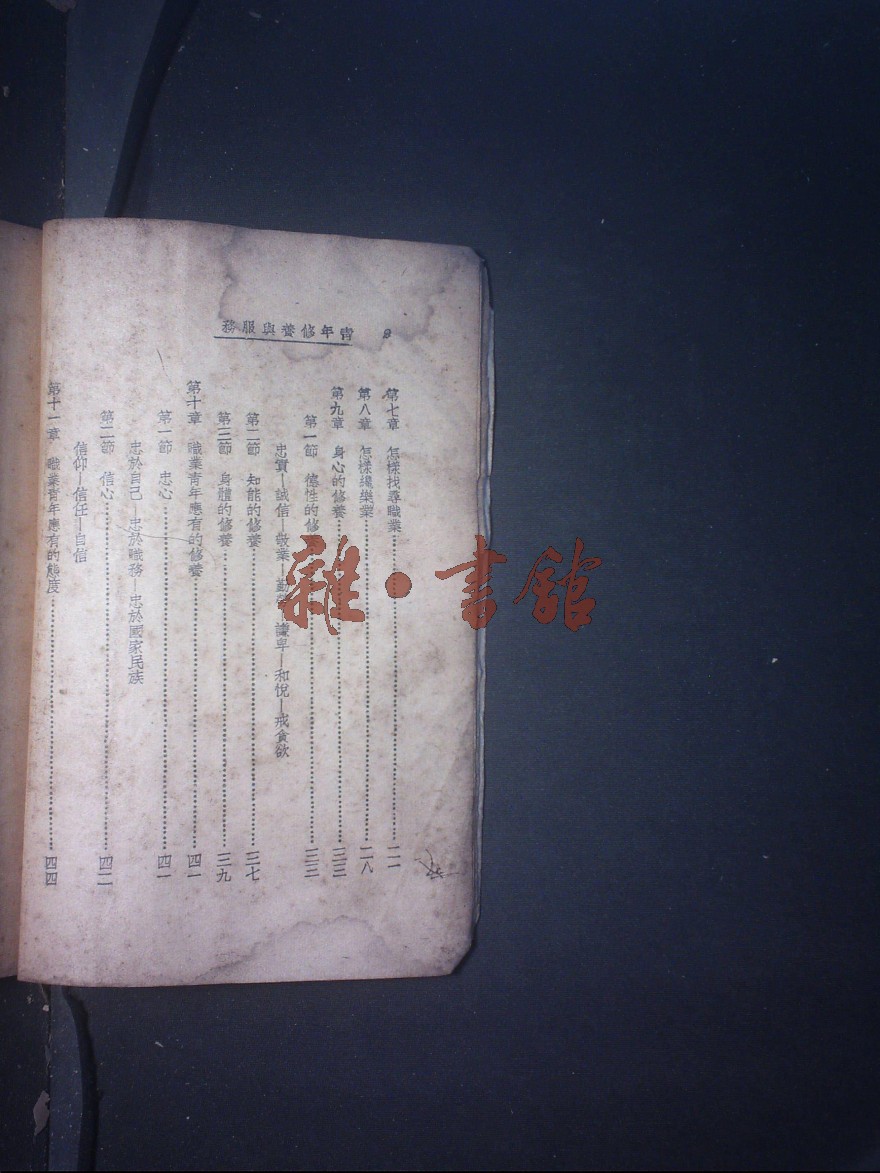 青年修養與服務 2
第七章 怎樣找尋職業……二一
第八章 怎樣纔樂業……二八
第九章 身心的修養……三三
第一節 德性的修……三三
忠實—誠信—敬業—勤—謙卑—和悅—戒貪欲
第二節 知能的修養……三七
第三節 身體的修養……三九
第十章 職業青年應有的修養……四一
第一節 忠心……四一
忠於自己—忠於職務—忠於國家民族
第二節 信心……四二
信仰—信任—自信
第十一章 職業青年應有的態度……四四
雜·書館